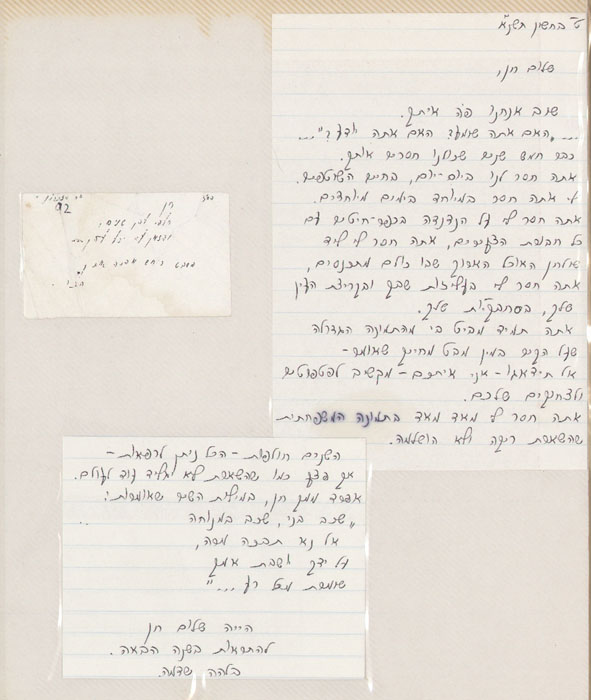 ט' בחשון תשנ"א
שלום חן,
שוב אנחנו פה איתך.
..."האם אתה שומע? האם אתה יודע?"...
כבר חמש שנים שכולנו חסרים אותך.
אתה חסר לנו ביום-יום, בחיים השוטפים.
לי אתה חסר במיוחד בימים מיוחדים.
אתה חסר לי על הנדנדה בכפר-חיטים עם
כל חבורת הצעירים, אתה חסר לי ליד
שולחן האוכל הארוך שבו כולם מתכנסים,
אתה חסר לי בעליזות שבך ובקריצת העין
שלך, בסחבקיות שלך.
אתה תמיד מביט בי מהתמונה הגדולה
שעל הקיר במין מבט מחייך שאומר-
אל תידאגו- אני איתכם- מקשיב לפטפוטים
ולצחוקים שלכם.
אתה חסר לי מאד מאד בתמונה המשפחתית
שהשארת ריקה ולא הושלמה.
השנים חולפות- הכל ניתן לרפואות-
אך פצע כמו שהשארת לא יגליד עוד לעולם.
אפרד ממך חן, במילות השיר שאומרות:
"שכב בני, שכב במנוחה
אל נא תבכה מרה,
על ידך יושבת אמך
שומרת מכל רע..."
היה שלום חן
להתראות בשנה הבאה.
92